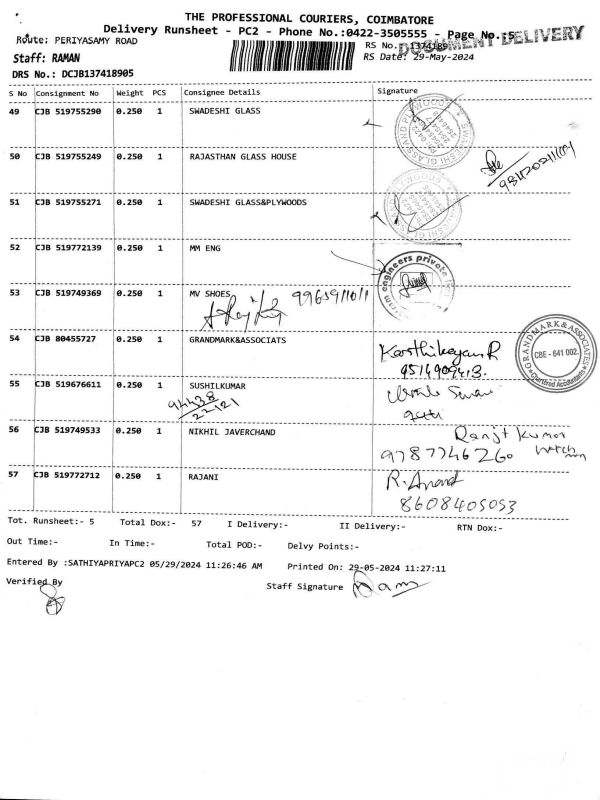 THE PROFESSIONAL COURIERS, COIMBATORE
Delivery Runsheet - PC2 - Phone No.:0422-3505555 - Page No.:5
DOCUMENT DELIVERY
Route: PERIYASAMY ROAD
RS No.:1374189
Staff: RAMAN
RS Date: 29-May-2024
DRS No.: DCJB137418905
S No Consignment No Weight PCS Consignee Details Signature
49 CJB 519755290 0.250 1 SWADESHI GLASS
50 CJB 519755249 0.250 1 RAJASTHAN GLASS HOUSE
51 CJB 519755271 0.250 1 SWADESHI GLASS&PLYWOODS
52 CJB 519772139 0.250 1 MM ENG
engineers private
53 CJB 519749369 0.250 1 MV SHOES
54 CJB 80455727 0.250 1 GRANDMARK&ASSOCIATS
Karthikeyan R
9514909413.
GRANDMARK & ASSOCIATES
CBE - 641 002.
Chartered Accountants
55 CJB 519676611 0.250 1 SUSHILKUMAR
94438
22121
56 CJB 519749533 0.250 1 NIKHIL JAVERCHAND
Ranjit kumar
9787746260
57 CJB 519772712 0.250 1 RAJANI
R. Anand
8608405053
Tot. Runsheet:- 5 Total Dox:- 57 I Delivery:- II Delivery:- RTN Dox:-
Out Time:- In Time:- Total POD:- Delvy Points:-
Entered By :SATHIYAPRIYAPC2 05/29/2024 11:26:46 AM Printed On: 29-05-2024 11:27:11
Verified By Staff Signature Ram